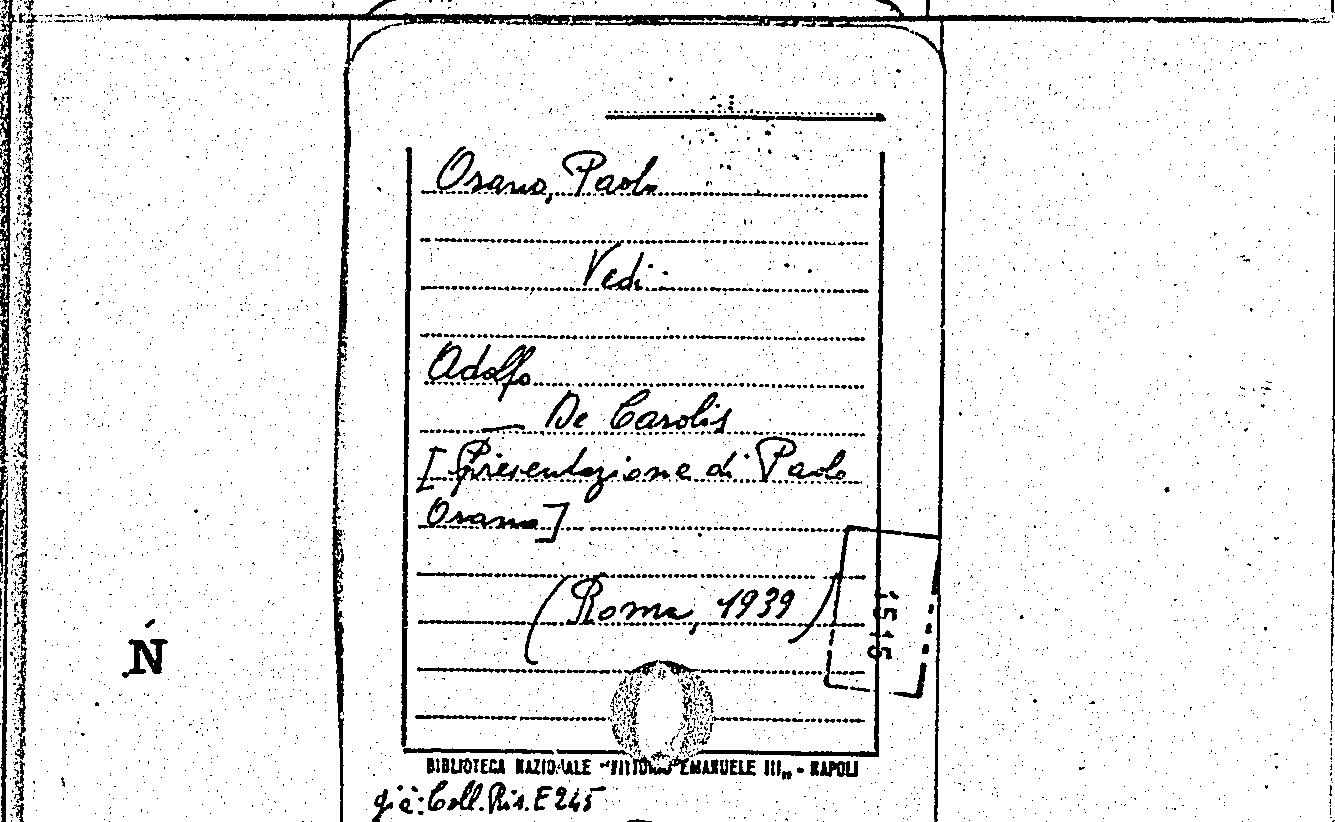 Orano, Paolo
Vedi:
Adolfo
— De Carolis
[Presentazione di Paolo
Orano]
(Roma, 1939)
1515
N
BIBLIOTECA NAZIONALE "VITTORIO EMANUELE III„ - NAPOLI
già: Coll. Ris. E 245